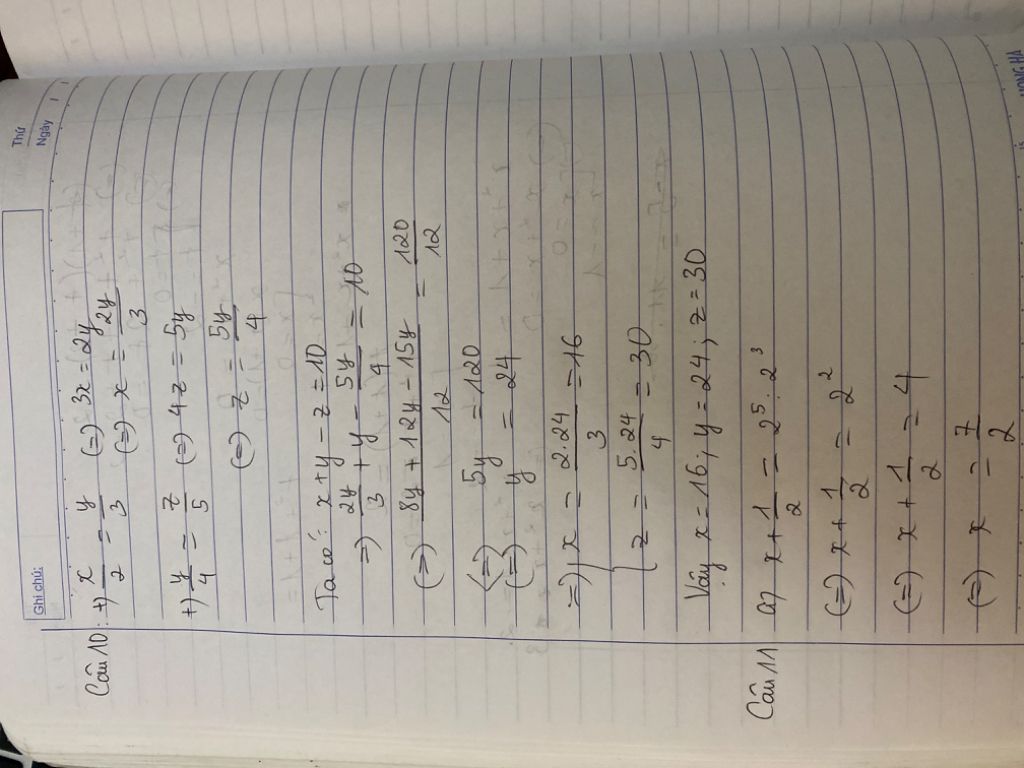 Thứ
Ngày
Ghi chú:
Câu 10: +) x/2 = y/3 (=) 3x = 2y
(=) x = 2y/3
+) y/4 = z/5 (=) 4z = 5y
(=) z = 5y/4
Ta có: x + y - z = 10
=) 2y/3 + y - 5y/4 = 10
(=) (8y + 12y - 15y)/12 = 120/12
(=) 5y = 120
(=) y = 24
=) { x = 2.24/3 = 16
z = 5.24/4 = 30
Vậy x = 16; y = 24; z = 30
Câu 11 a) x + 1/2 = 2⁵ : 2³
(=) x + 1/2 = 2²
(=) x + 1/2 = 4
(=) x = 7/2